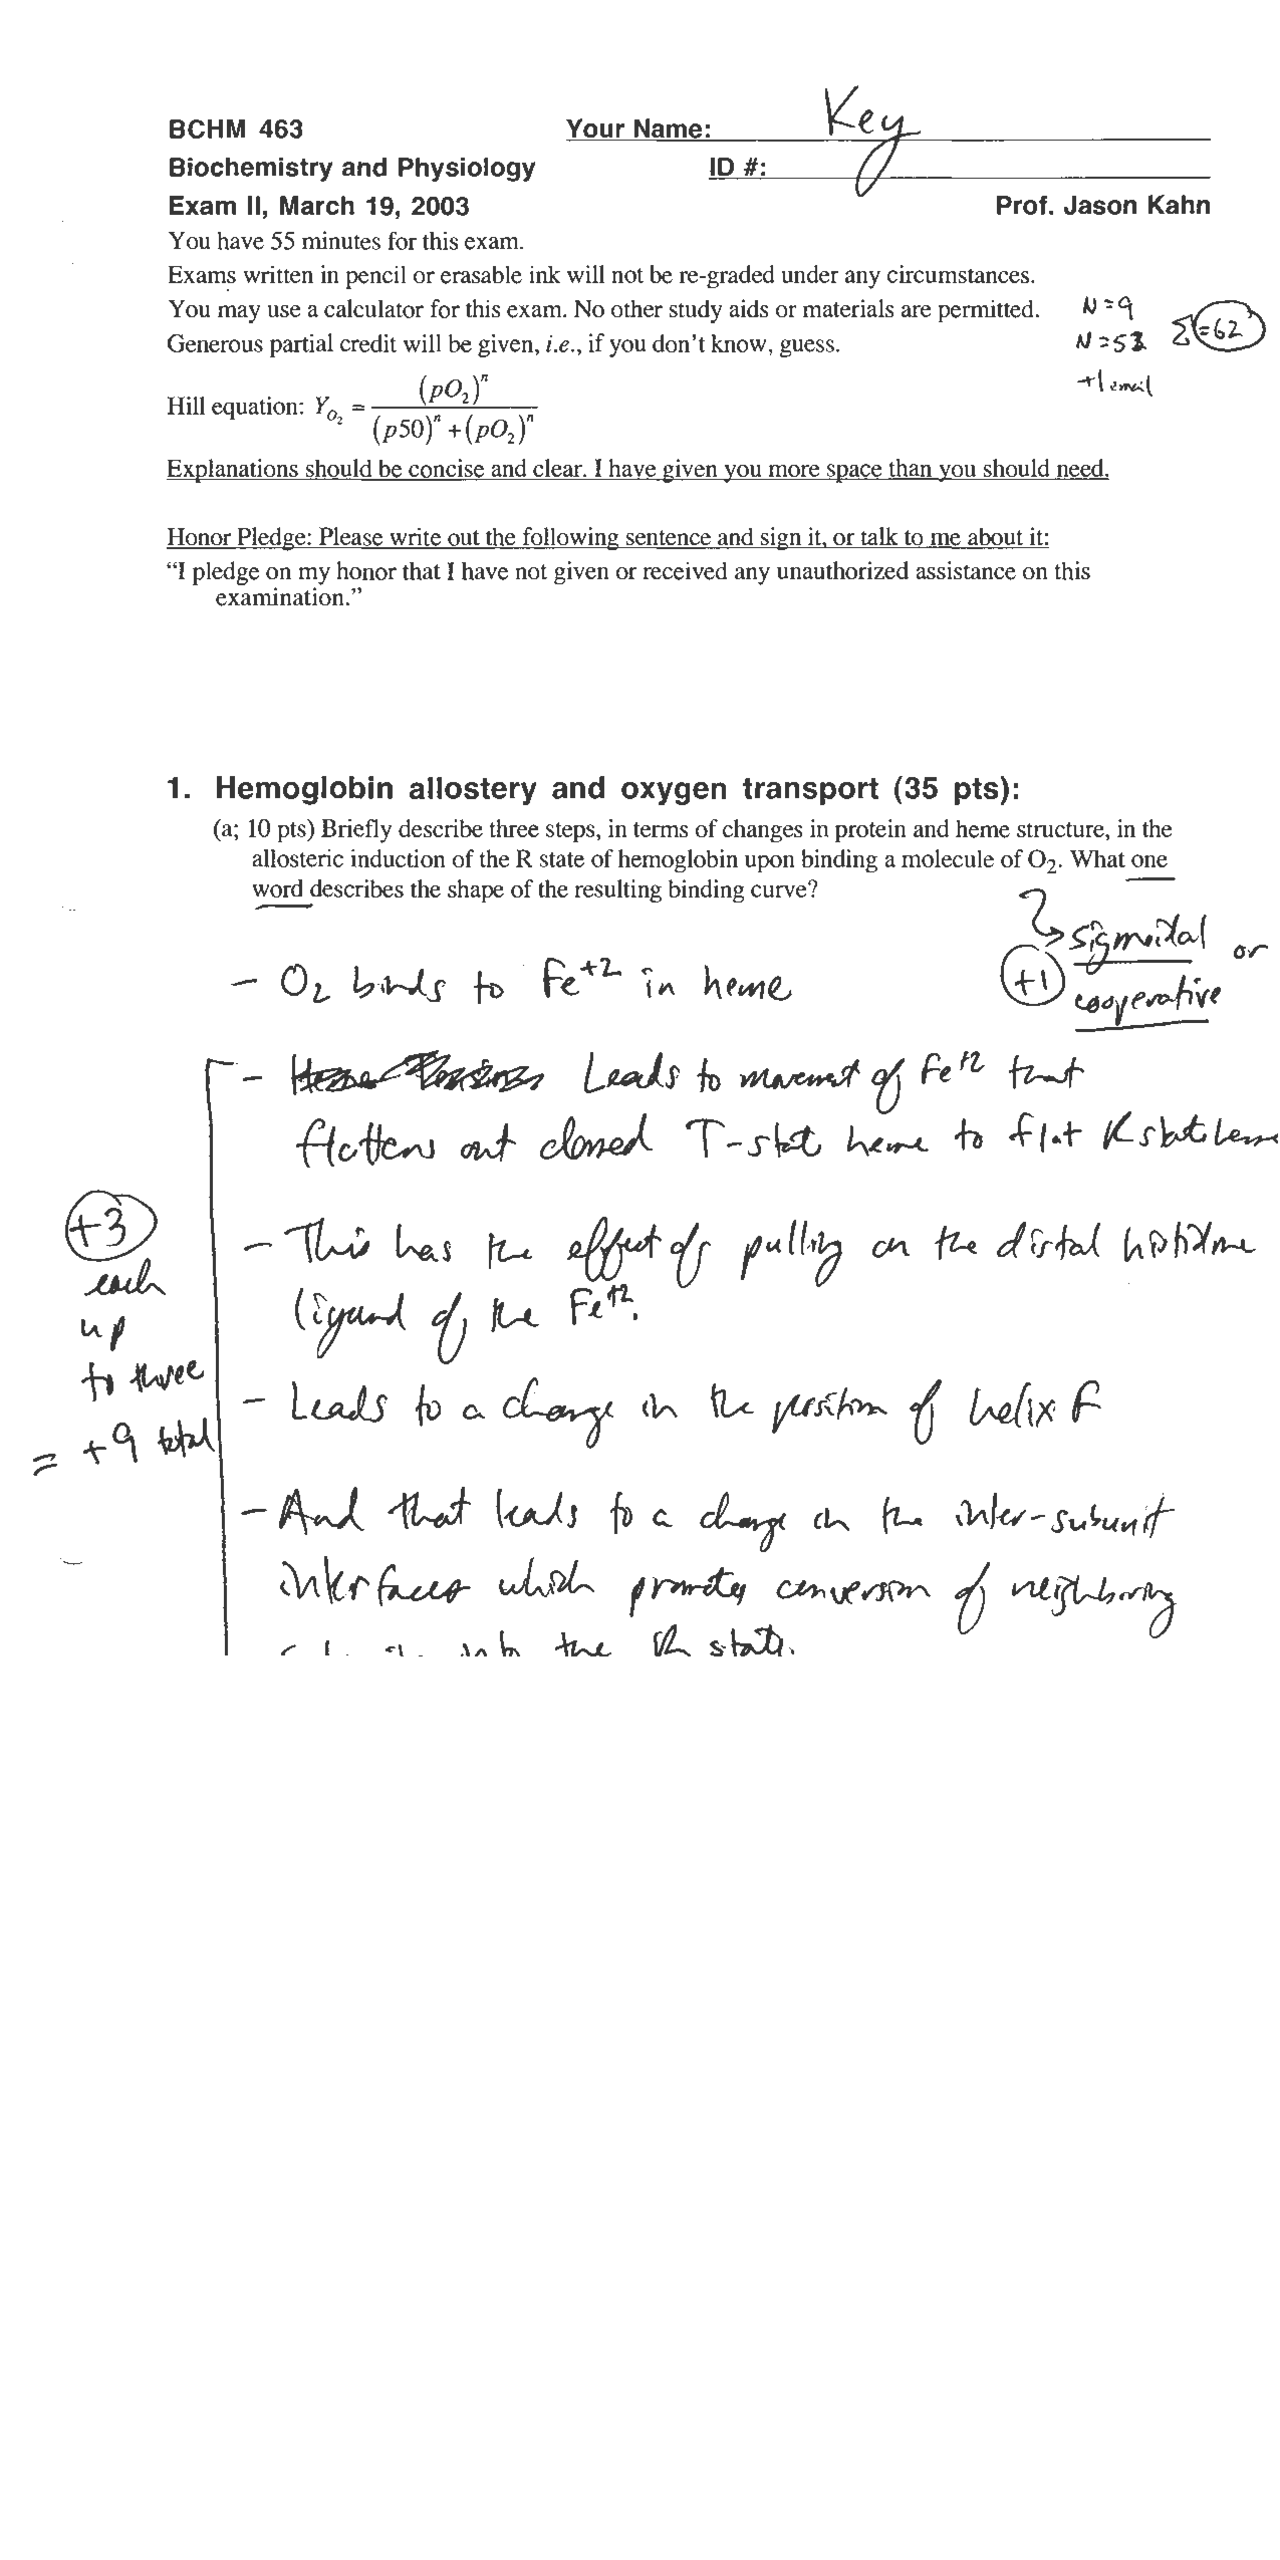 BCHM 463
Your Name: Key
Biochemistry and Physiology
ID #:
Exam II, March 19, 2003
Prof. Jason Kahn
You have 55 minutes for this exam.
Exams written in pencil or erasable ink will not be re-graded under any circumstances.
You may use a calculator for this exam. No other study aids or materials are permitted.
N=9
Generous partial credit will be given, i.e., if you don't know, guess.
N=53
Σ=62
+1 email
Hill equation: Y_{O_2} = (pO_2)^n / ((p50)^n + (pO_2)^n)
Explanations should be concise and clear. I have given you more space than you should need.
Honor Pledge: Please write out the following sentence and sign it, or talk to me about it:
“I pledge on my honor that I have not given or received any unauthorized assistance on this
examination.”
1. Hemoglobin allostery and oxygen transport (35 pts):
(a; 10 pts) Briefly describe three steps, in terms of changes in protein and heme structure, in the
allosteric induction of the R state of hemoglobin upon binding a molecule of O₂. What one
word describes the shape of the resulting binding curve?
sigmoidal or
+1 cooperative
- O₂ binds to Fe⁺² in heme
- Leads to movement of Fe⁺² that
flattens out domed T-state heme to flat R state heme
+3
each
up
to three
= +9 total
- This has the effect of pulling on the distal histidine
ligand of the Fe⁺².
- Leads to a change in the position of helix F
- And that leads to a change in the inter-subunit
interfaces which promotes conversion of neighboring
into the R state.